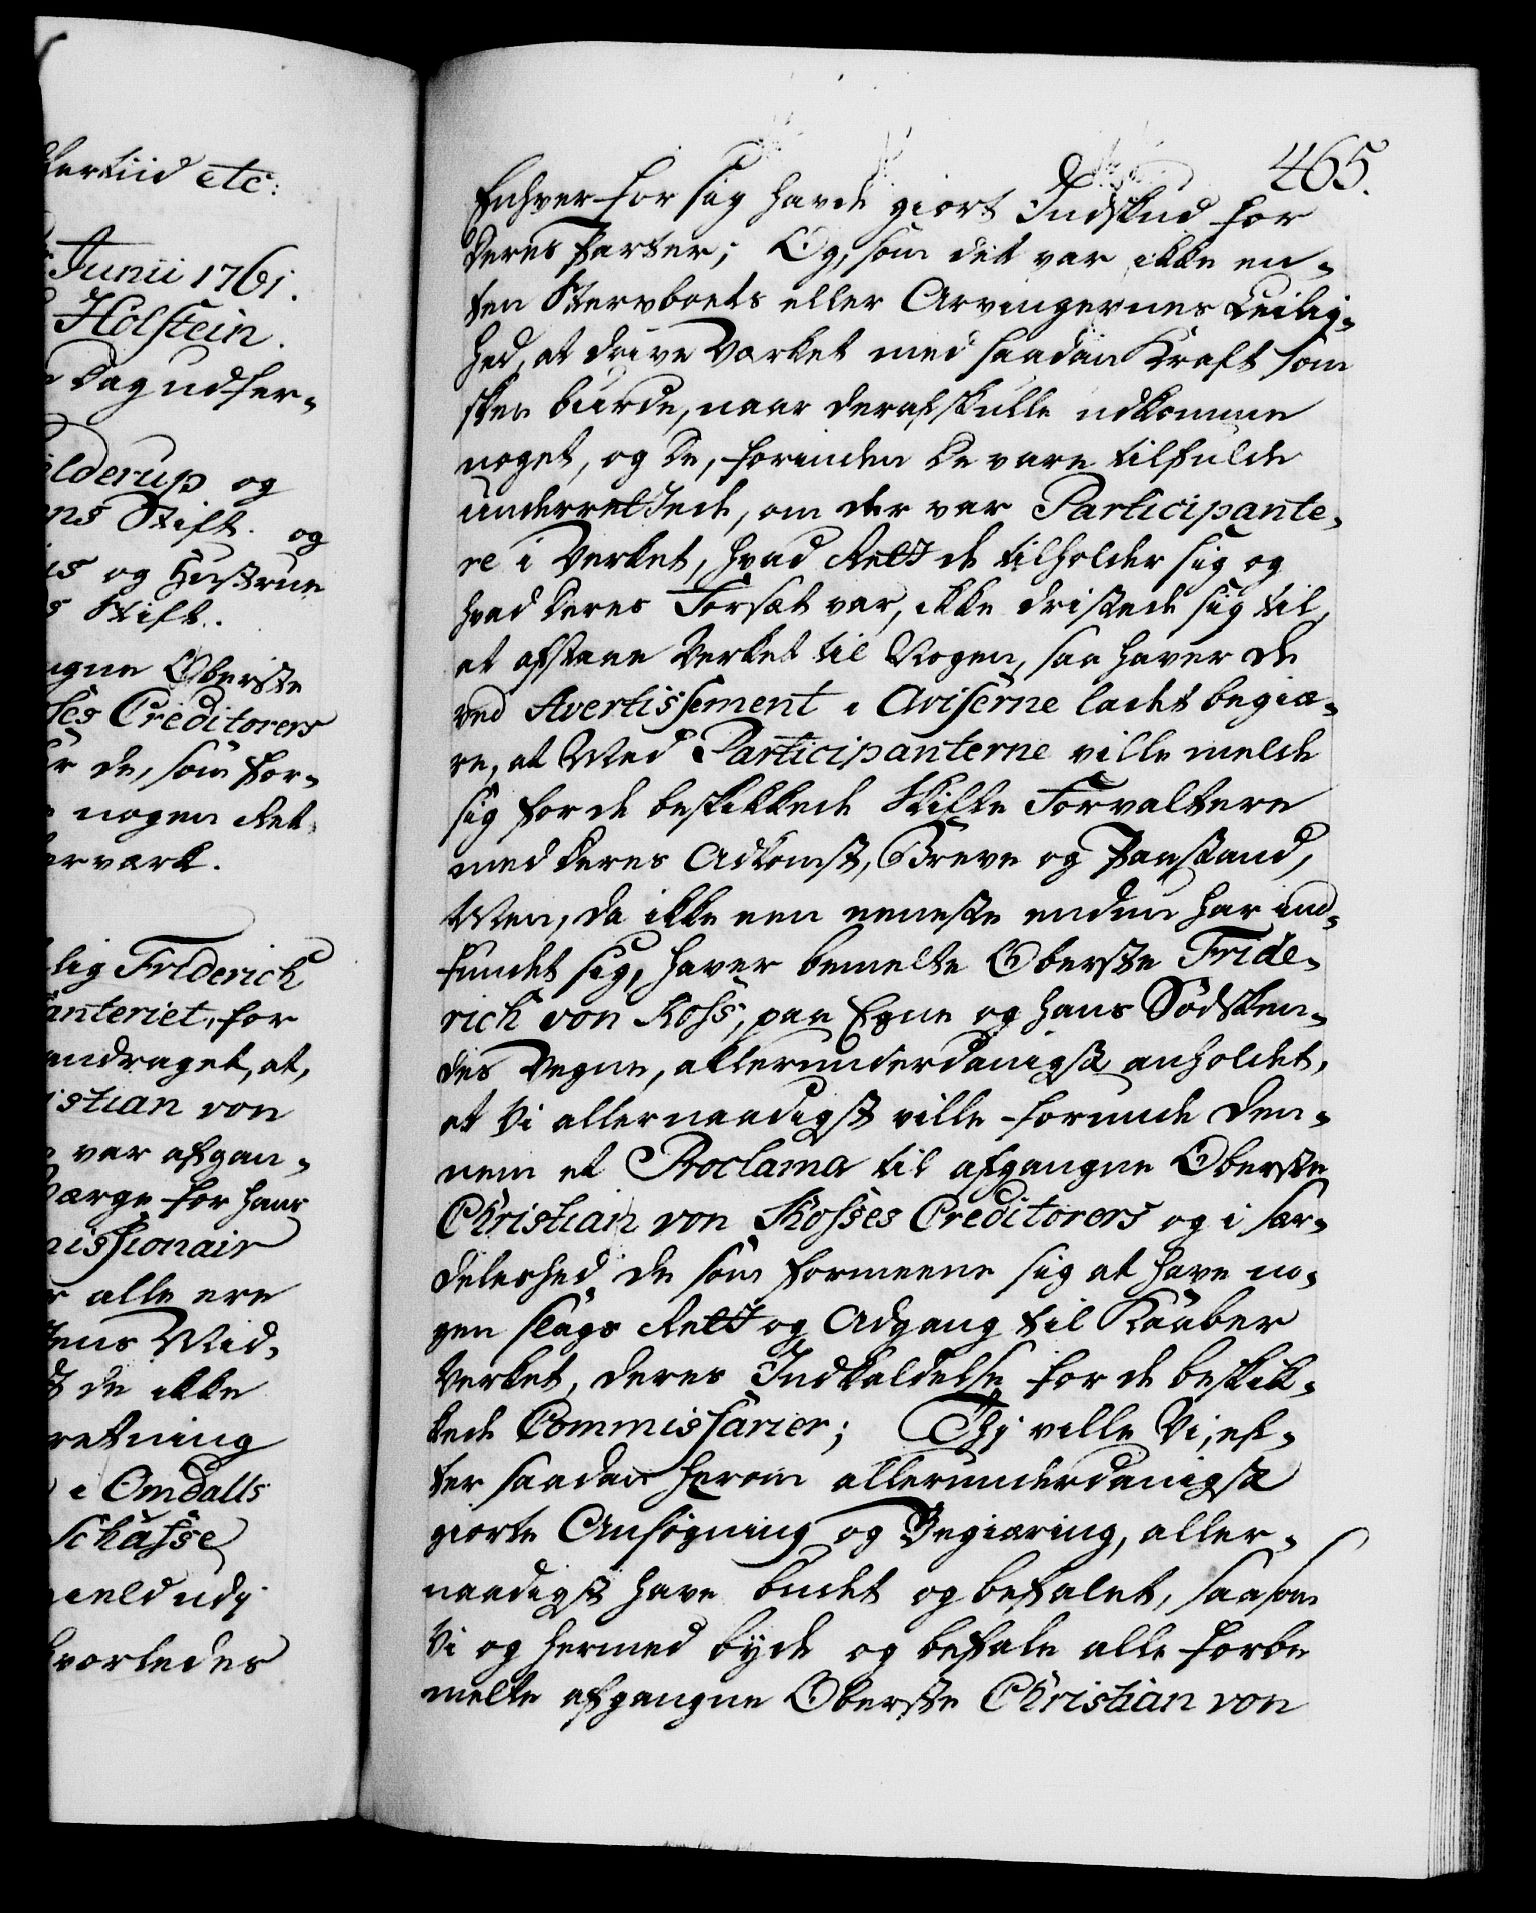 tertiid etc:
Junii 1761.
Holstein.
Dag udfer-
elderup og
ns Stift. og
is og Hustrue
s Stift.
ngne Oberste
ses Creditorers
r de, som for-
nogen Ret
erværk.
lig Friderich
anteriet, for
andraget, at,
istian von
var afgan-
Værge for hans
missionair
r alle ere
tens Mid-
de ikke
retning
i Omdalls
Schasse
ield udj
hvorledes
465.
Enhver for sig havde giort Indskud for
deres Parter; Og, som det var ikke en-
ten Stervboets eller Arvingernes Leilig-
hed, at drive Værket med saadan Kraft som
skee burde, naar deraf skulle udkomme
noget, og de, forinden de vare tilfulde
underrettede, om der var Participante-
re i Verket, hvad Rett de tilholder sig og
hvad deres Forsæt var, ikke dristede sig til,
at afstaae Verket til Nogen, saa haver de
ved Avertissement i Aviserne ladet begiæ-
re, at Med Participanterne ville melde
sig for de beskikkede Skifte Forvaltere
med deres Adkomst, Breve og Paastand,
Men, da ikke een eeneste endnu har ind-
fundet sig, haver bemelte Oberste Fride-
rich von Koss, paa Egne og hans Södsken-
des Vegne, allerunderdanigst anholdet,
at Vi allernaadigst ville forunde den-
nem et Proclama til afgangne Oberste
Christian von Kosses Creditorers og i sær-
deleshed de som formeene sig at have no-
gen slags Rett og Adgang til Kaaber
Verket, deres Indkaldelse for de beskik-
kede Commissarier; Thj ville Vi, ef-
ter saadan herom allerunderdanigst
giorte Ansøgning og Begiæring, aller-
naadigst have budet og befalet, saasom
Vi og hermed byde og befale alle forbe
melte afgangne Oberste Christian von